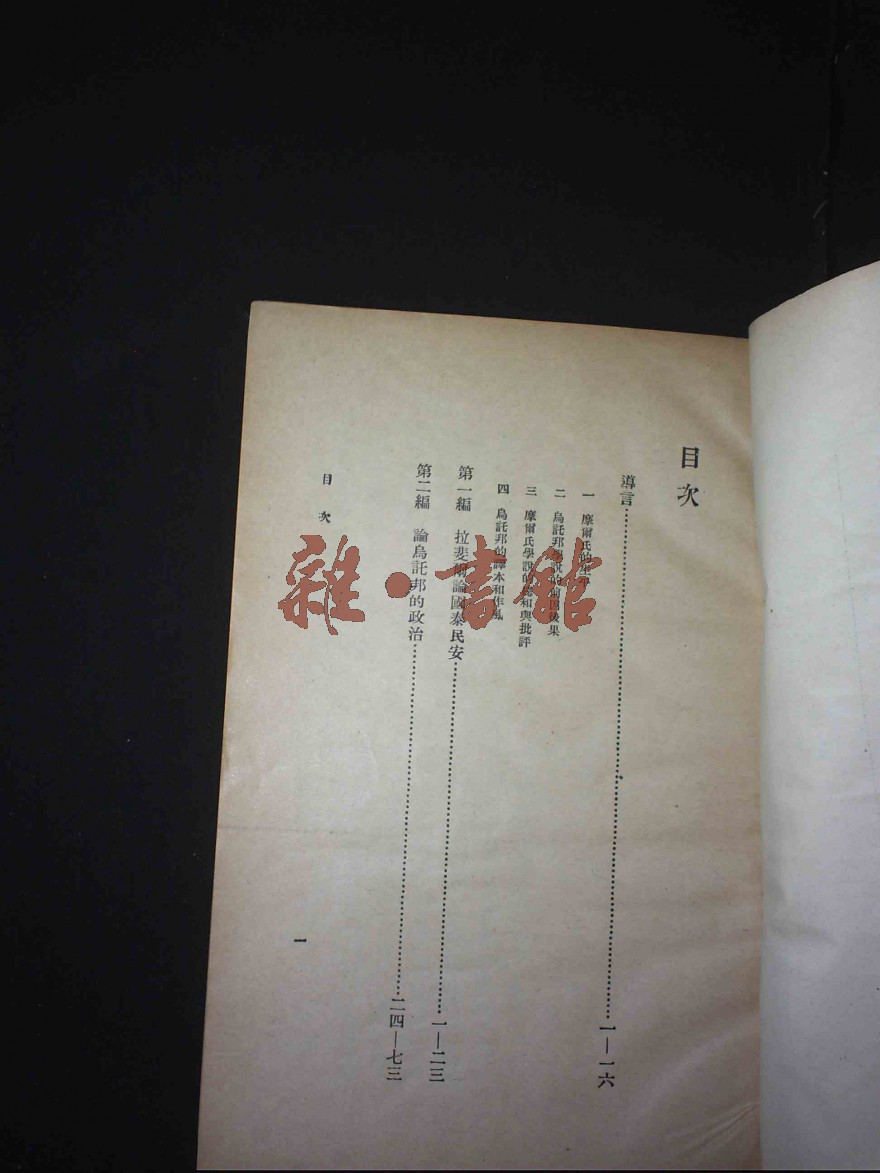 目次
導言……一—一六
一 摩爾氏的生平
二 烏託邦學說的前因後果
三 摩爾氏學說的和與批評
四 烏託邦的譯本和作風
第一編 拉斐論國泰民安……一—二三
第二編 論烏託邦的政治……二四—七三
目次
一
雜·書館